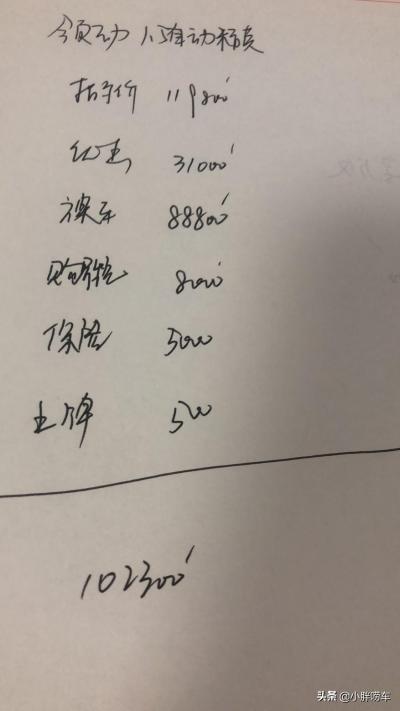 领动 自动精英
指导价 119800
优惠 31000
裸车 88800
购置税 8000
保险 5000
上牌 500
102300
头条 @小胖唠车